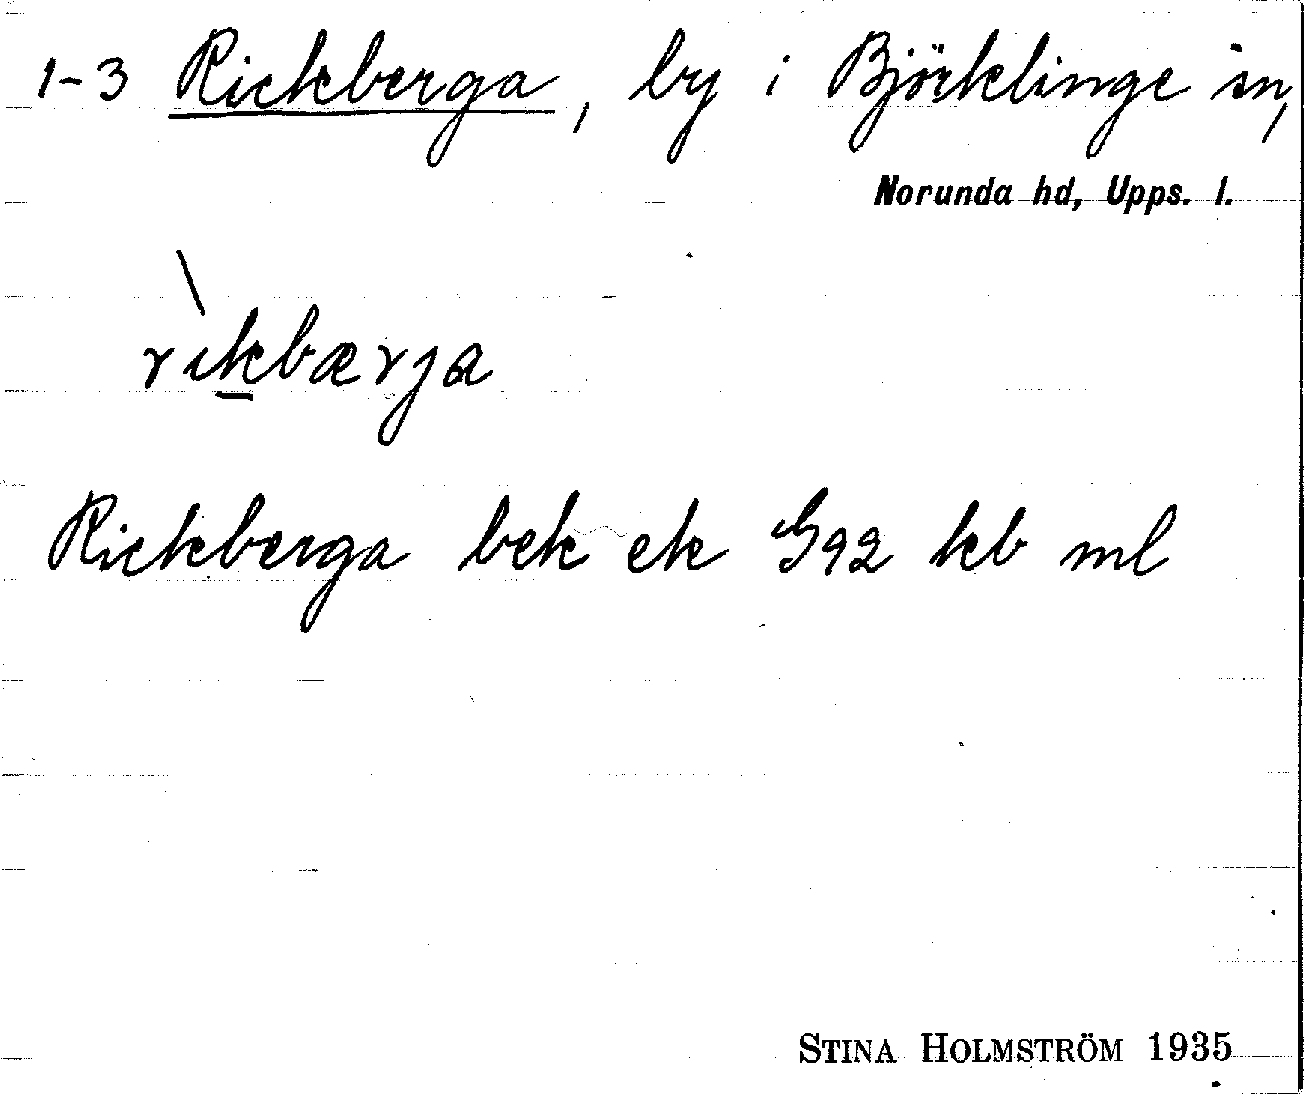 1-3 Rickberga, by i Björklinge sn,
Norunda hd, Upps. l.
rìkbærja
Rickberga bek ek G92 kb ml
STINA HOLMSTRÖM 1935